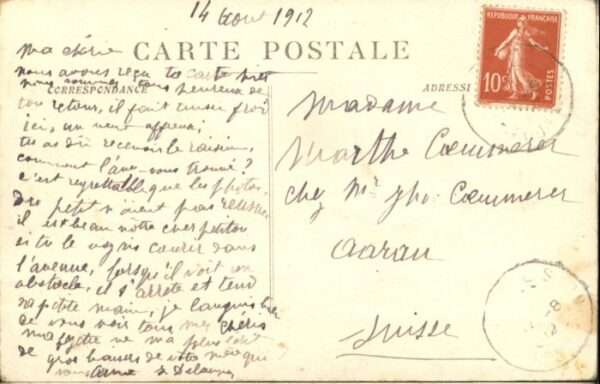 14 Aout 1912
CARTE POSTALE
CORRESPONDANCE
ADRESSE
RÉPUBLIQUE FRANÇAISE
10c
POSTES
ma chérie
nous avons reçu ta carte hier
nous sommes tous heureux de
ton retour, il fait aussi froid
ici, un vent affreux,
tu as dû recevoir le raisin,
comment l'avez-vous trouvé?
c'est regrettable que les photos
des petit n'aient pas réussi
il est beau notre cher petitou
si tu le voyais courir dans
l'avenue, lorsqu'il voit un
obstacle, il s'arrete et tend
sa petite main, je languis
de vous voir tous mes chéris
ma ne m'a plus
de gros baisers de votre mère qui
vous aime Delaunay
Madame
Marthe Coemmerer
chez Mr Coemmerer
Aarau
Suisse